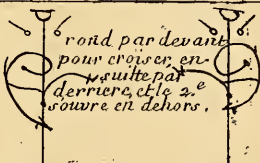 rond par devant
pour croiser en-
suitte par
derriere, et le 2.e
s'ouvre en dehors.